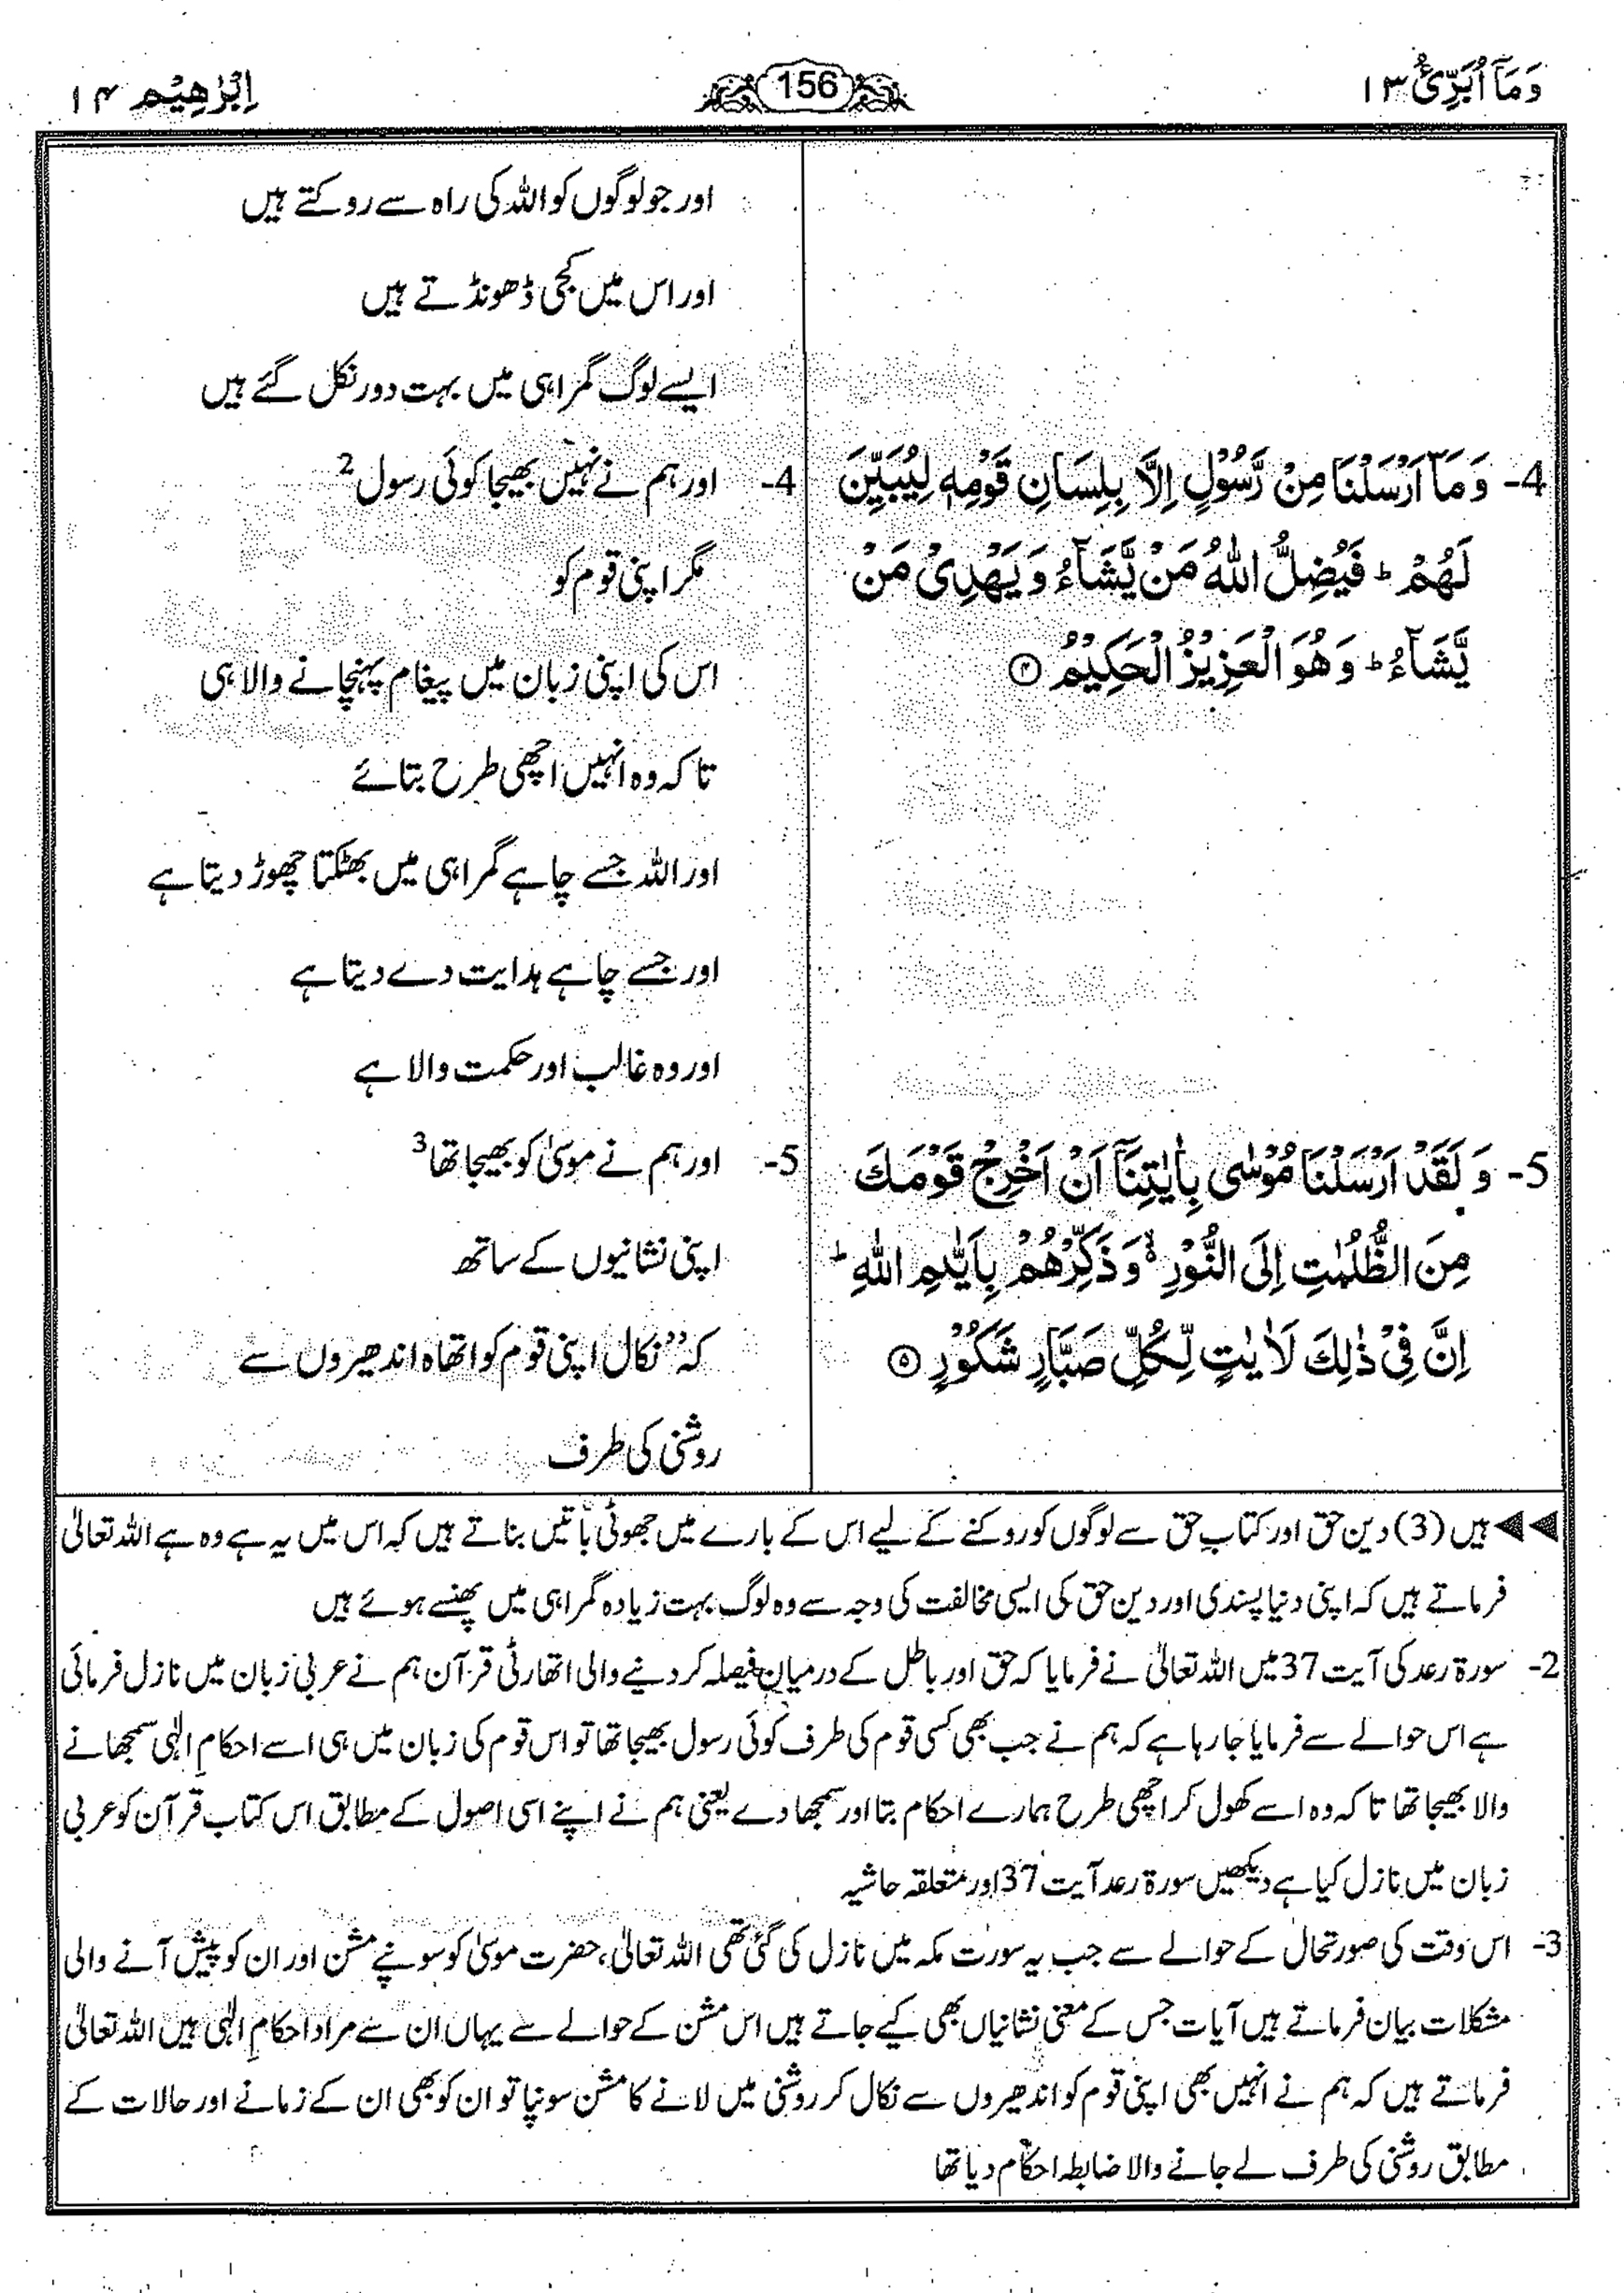 وَمَآ اُبَرِّئُ ۱۳
156
اِبْرٰهِيْم ۱۴
اور جو لوگوں کو اللہ کی راہ سے روکتے ہیں
اور اس میں کجی ڈھونڈتے ہیں
ایسے لوگ گمراہی میں بہت دور نکل گئے ہیں
4- وَمَآ اَرْسَلْنَا مِنْ رَّسُوْلٍ اِلَّا بِلِسَانِ قَوْمِهٖ لِيُبَيِّنَ
لَهُمْ ؕ فَيُضِلُّ اللّٰهُ مَنْ يَّشَآءُ وَيَهْدِيْ مَنْ
يَّشَآءُ ؕ وَهُوَ الْعَزِيْزُ الْحَكِيْمُ ۝۴
4- اور ہم نے نہیں بھیجا کوئی رسول 2
مگر اپنی قوم کو
اس کی اپنی زبان میں پیغام پہنچانے والا ہی
تاکہ وہ انہیں اچھی طرح بتائے
اور اللہ جسے چاہے گمراہی میں بھٹکتا چھوڑ دیتا ہے
اور جسے چاہے ہدایت دے دیتا ہے
اور وہ غالب اور حکمت والا ہے
5- وَلَقَدْ اَرْسَلْنَا مُوْسٰى بِاٰيٰتِنَآ اَنْ اَخْرِجْ قَوْمَكَ
مِنَ الظُّلُمٰتِ اِلَى النُّوْرِ ۙ۬ وَذَكِّرْهُمْ بِاَيّٰىمِ اللّٰهِ ؕ
اِنَّ فِيْ ذٰلِكَ لَاٰيٰتٍ لِّكُلِّ صَبَّارٍ شَكُوْرٍ ۝۵
5- اور ہم نے موسیٰ کو بھیجا تھا 3
اپنی نشانیوں کے ساتھ
کہ ”نکال اپنی قوم کو اتھاہ اندھیروں سے
روشنی کی طرف
◀◀ ہیں (3) دین حق اور کتابِ حق سے لوگوں کو روکنے کے لیے اس کے بارے میں جھوٹی باتیں بناتے ہیں کہ اس میں یہ ہے وہ ہے اللہ تعالیٰ
فرماتے ہیں کہ اپنی دنیا پسندی اور دین حق کی ایسی مخالفت کی وجہ سے وہ لوگ بہت زیادہ گمراہی میں پھنسے ہوئے ہیں
2- سورۃ رعد کی آیت 37 میں اللہ تعالیٰ نے فرمایا کہ حق اور باطل کے درمیان فیصلہ کر دینے والی اتھارٹی قرآن ہم نے عربی زبان میں نازل فرمائی
ہے اس حوالے سے فرمایا جا رہا ہے کہ ہم نے جب بھی کسی قوم کی طرف کوئی رسول بھیجا تھا تو اس قوم کی زبان میں ہی اسے احکامِ الٰہی سمجھانے
والا بھیجا تھا تاکہ وہ اسے کھول کر اچھی طرح ہمارے احکام بتا اور سمجھا دے یعنی ہم نے اپنے اسی اصول کے مطابق اس کتاب قرآن کو عربی
زبان میں نازل کیا ہے دیکھیں سورۃ رعد آیت 37 اور متعلقہ حاشیہ
3- اس وقت کی صورتحال کے حوالے سے جب یہ سورت مکہ میں نازل کی گئی تھی اللہ تعالیٰ، حضرت موسیٰ کو سونپے مشن اور ان کو پیش آنے والی
مشکلات بیان فرماتے ہیں آیات جس کے معنی نشانیاں بھی کیے جاتے ہیں اس مشن کے حوالے سے یہاں ان سے مراد احکامِ الٰہی ہیں اللہ تعالیٰ
فرماتے ہیں کہ ہم نے انہیں بھی اپنی قوم کو اندھیروں سے نکال کر روشنی میں لانے کا مشن سونپا تو ان کو بھی ان کے زمانے اور حالات کے
مطابق روشنی کی طرف لے جانے والا ضابطہ احکام دیا تھا